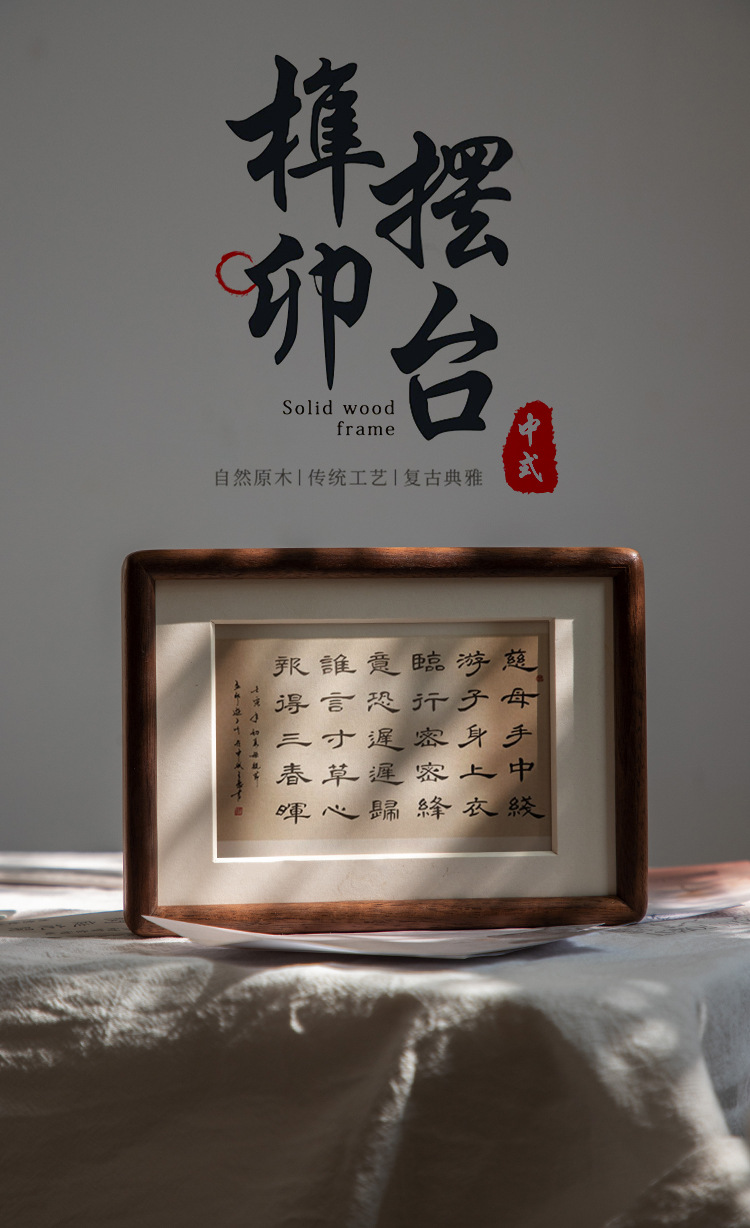 榫卯
摆台
Solid wood
frame
中式
自然原木|传统工艺|复古典雅
慈母手中綫
游子身上衣
臨行密密綘
意恐遲遲歸
誰言寸草心
報得三春暉
壬寅年初夏母親節